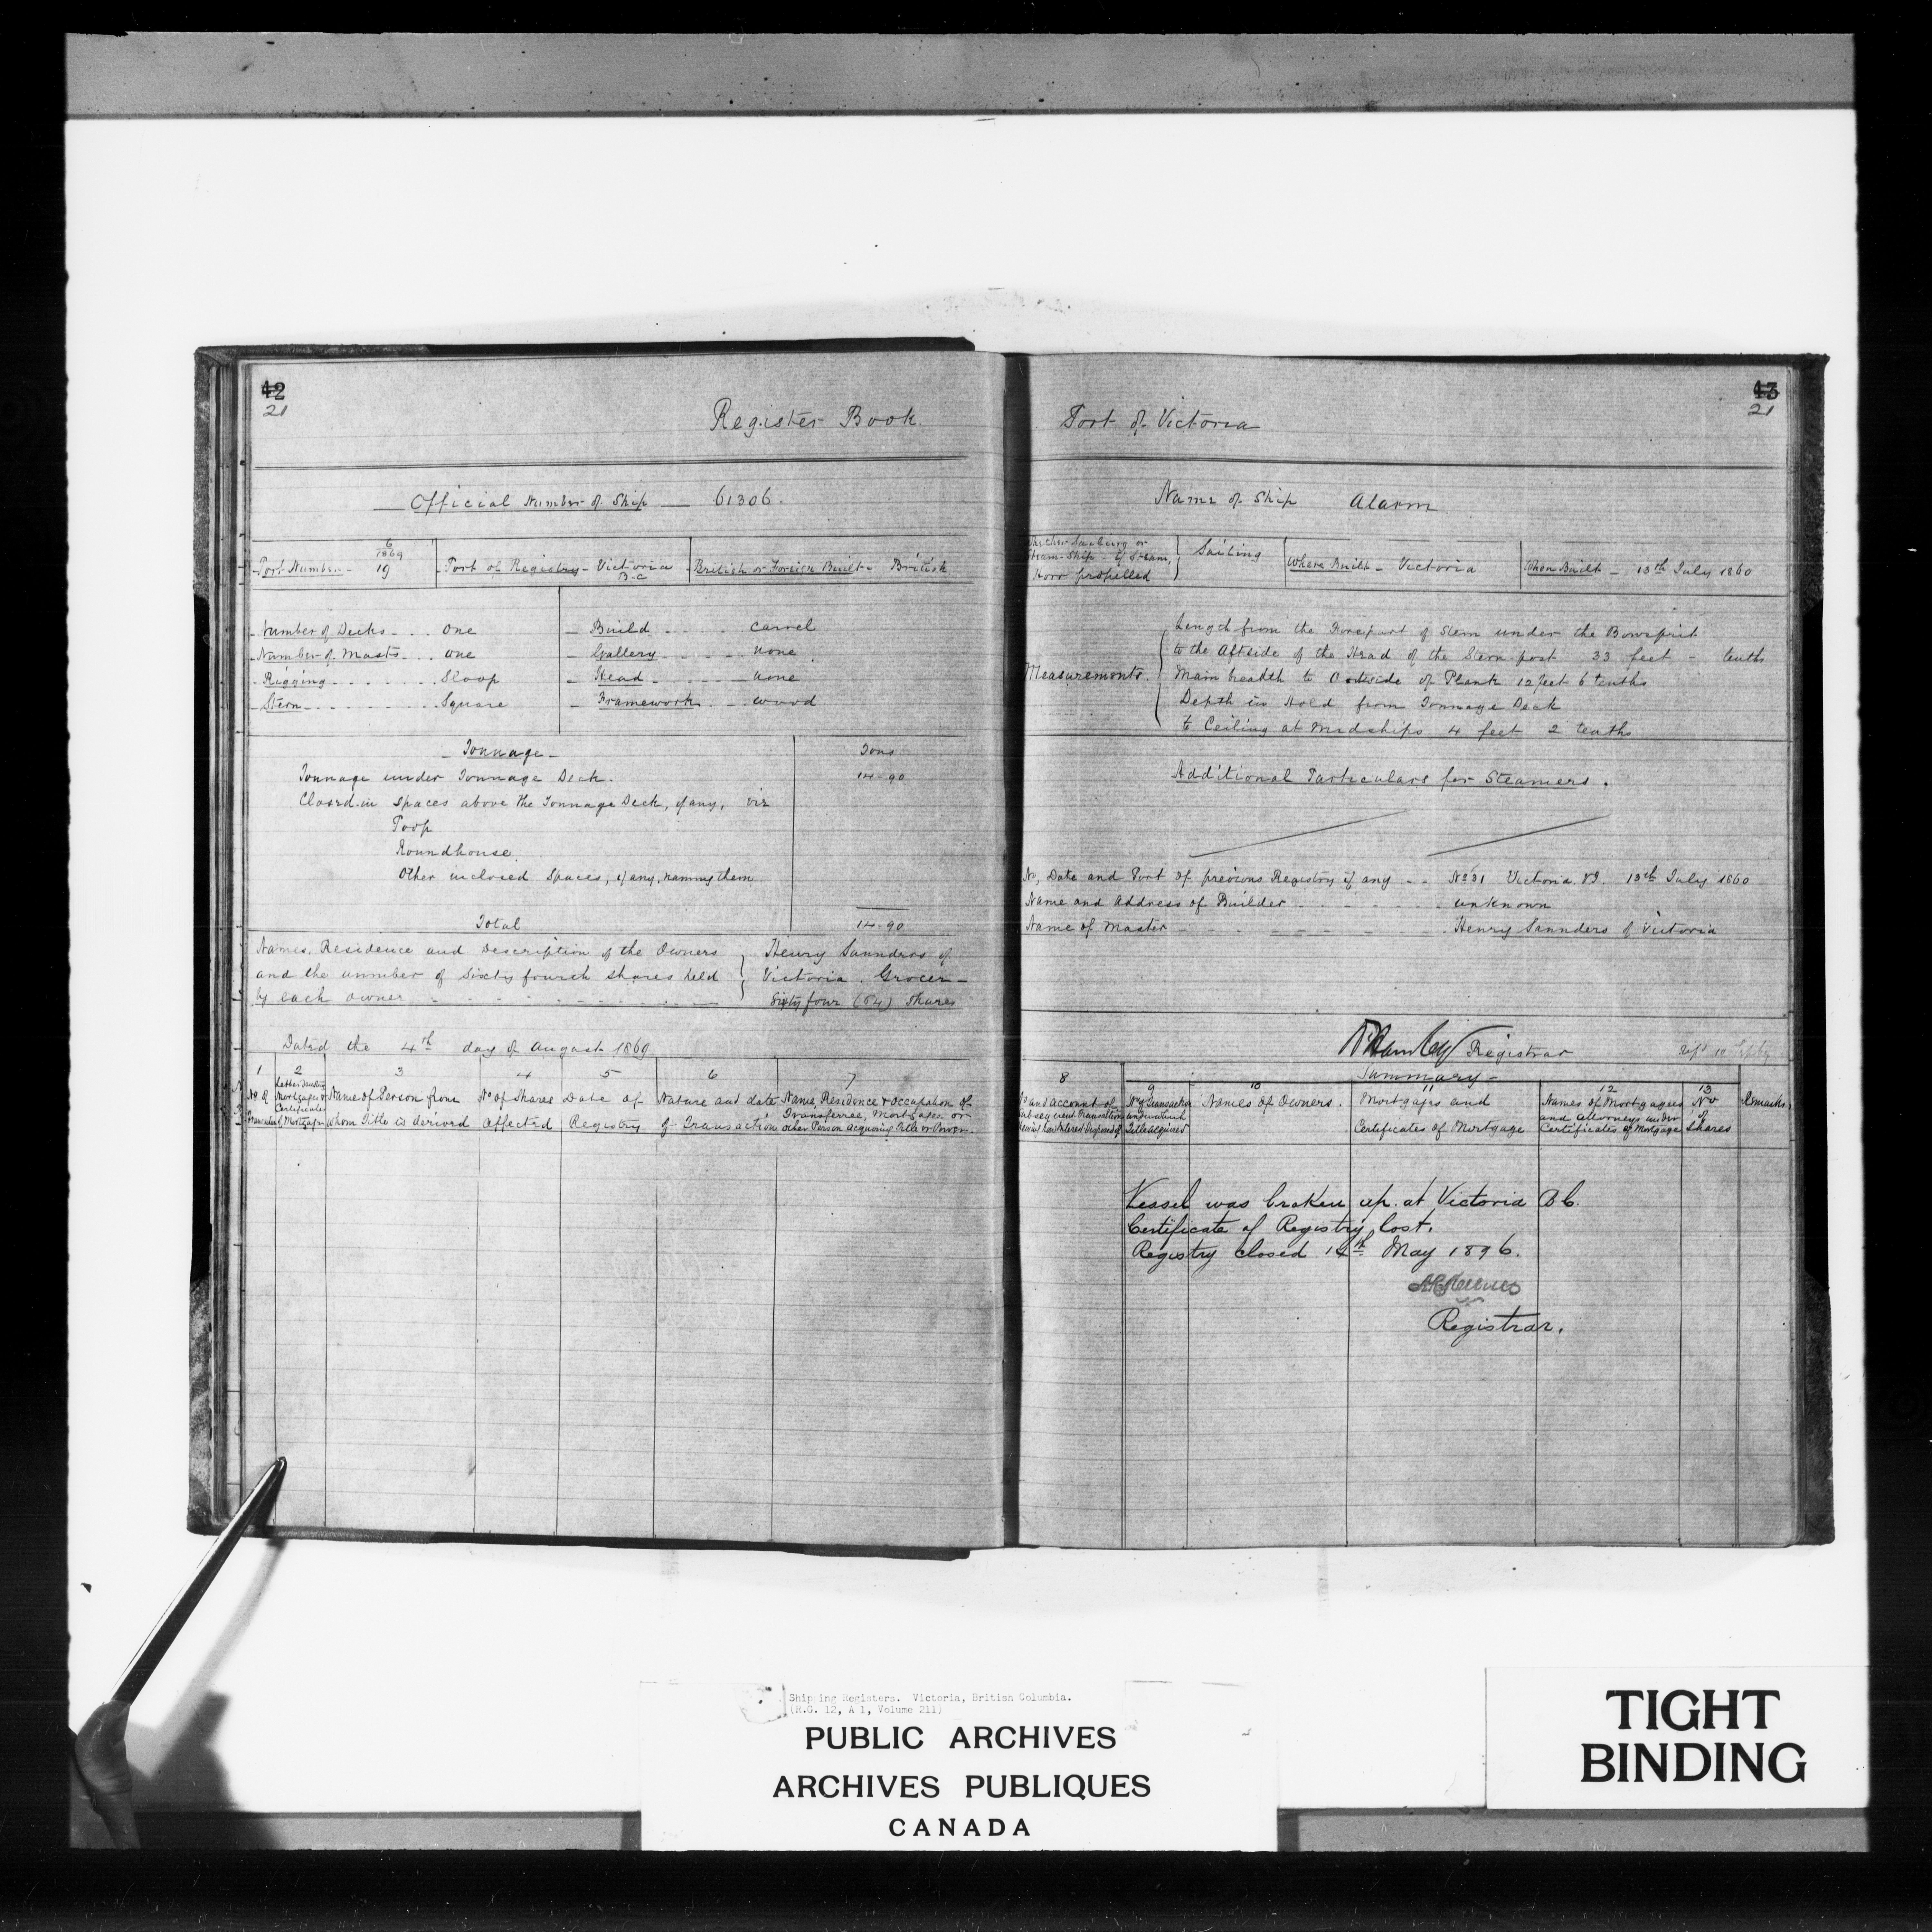 42
21
Register Book
Official Number of Ship 61306.
6
1869
Port Number - 19
Port of Registry - Victoria B.C
British or Foreign Built - British
Number of Decks - one
Number of Masts - one
Rigging - Sloop
Stern - Square
Build - carvel
Gallery - none
Head - none
Framework - wood
Tonnage
Tons
Tonnage under Tonnage Deck. 14-90
Closed-in spaces above the Tonnage Deck, if any, viz
Poop
Roundhouse
Other inclosed Spaces, if any, naming them
Total 14-90
Names, Residence and Description of the Owners
and the number of Sixty fourth shares held
by each owner
Henry Saunders of
Victoria. Grocer -
Sixty four (64) Shares
Dated the 4th day of August 1869
1 2 3 4 5 6 7
No of
Letter denoting Mortgages or Certificates of Mortgage
Name of Person from whom Title is derived
No of Shares affected
Date of Registry
Nature and date of Transaction
Name, Residence & occupation of Transferree, Mortgagee or other Person acquiring Title or Power
43
21
Port of Victoria
Name of Ship Alarm
Whether Sailing or
Steam-Ship - if Steam,
How propelled
Sailing
Where Built - Victoria
When Built - 13th July 1860
Measurements
Length from the Forepart of Stem under the Bowsprit
to the Aftside of the Head of the Stern post 33 feet - tenths
Main breadth to Outside of Plank 12 feet 6 tenths
Depth in Hold from Tonnage Deck
to Ceiling at Midships 4 feet 2 tenths
Additional Particulars for Steamers.
No, Date and Port of previous Registry if any - No 31 Victoria V.I. 13th July 1860
Name and Address of Builder - unknown
Name of Master - Henry Saunders of Victoria
Registrar
Summary -
8 9 10 11 12 13
No of Transaction under which Title acquired
Names of Owners.
Mortgages and Certificates of Mortgage
Names of Mortgagees and Attorneys under Certificates of Mortgage
No of Shares
Remarks
Vessel was broken up at Victoria B.C.
Certificate of Registry lost.
Registry closed 14th May 1896.
Registrar.
Shipping Registers. Victoria, British Columbia.
(R.G. 12, A 1, Volume 211)
PUBLIC ARCHIVES
ARCHIVES PUBLIQUES
CANADA
TIGHT
BINDING